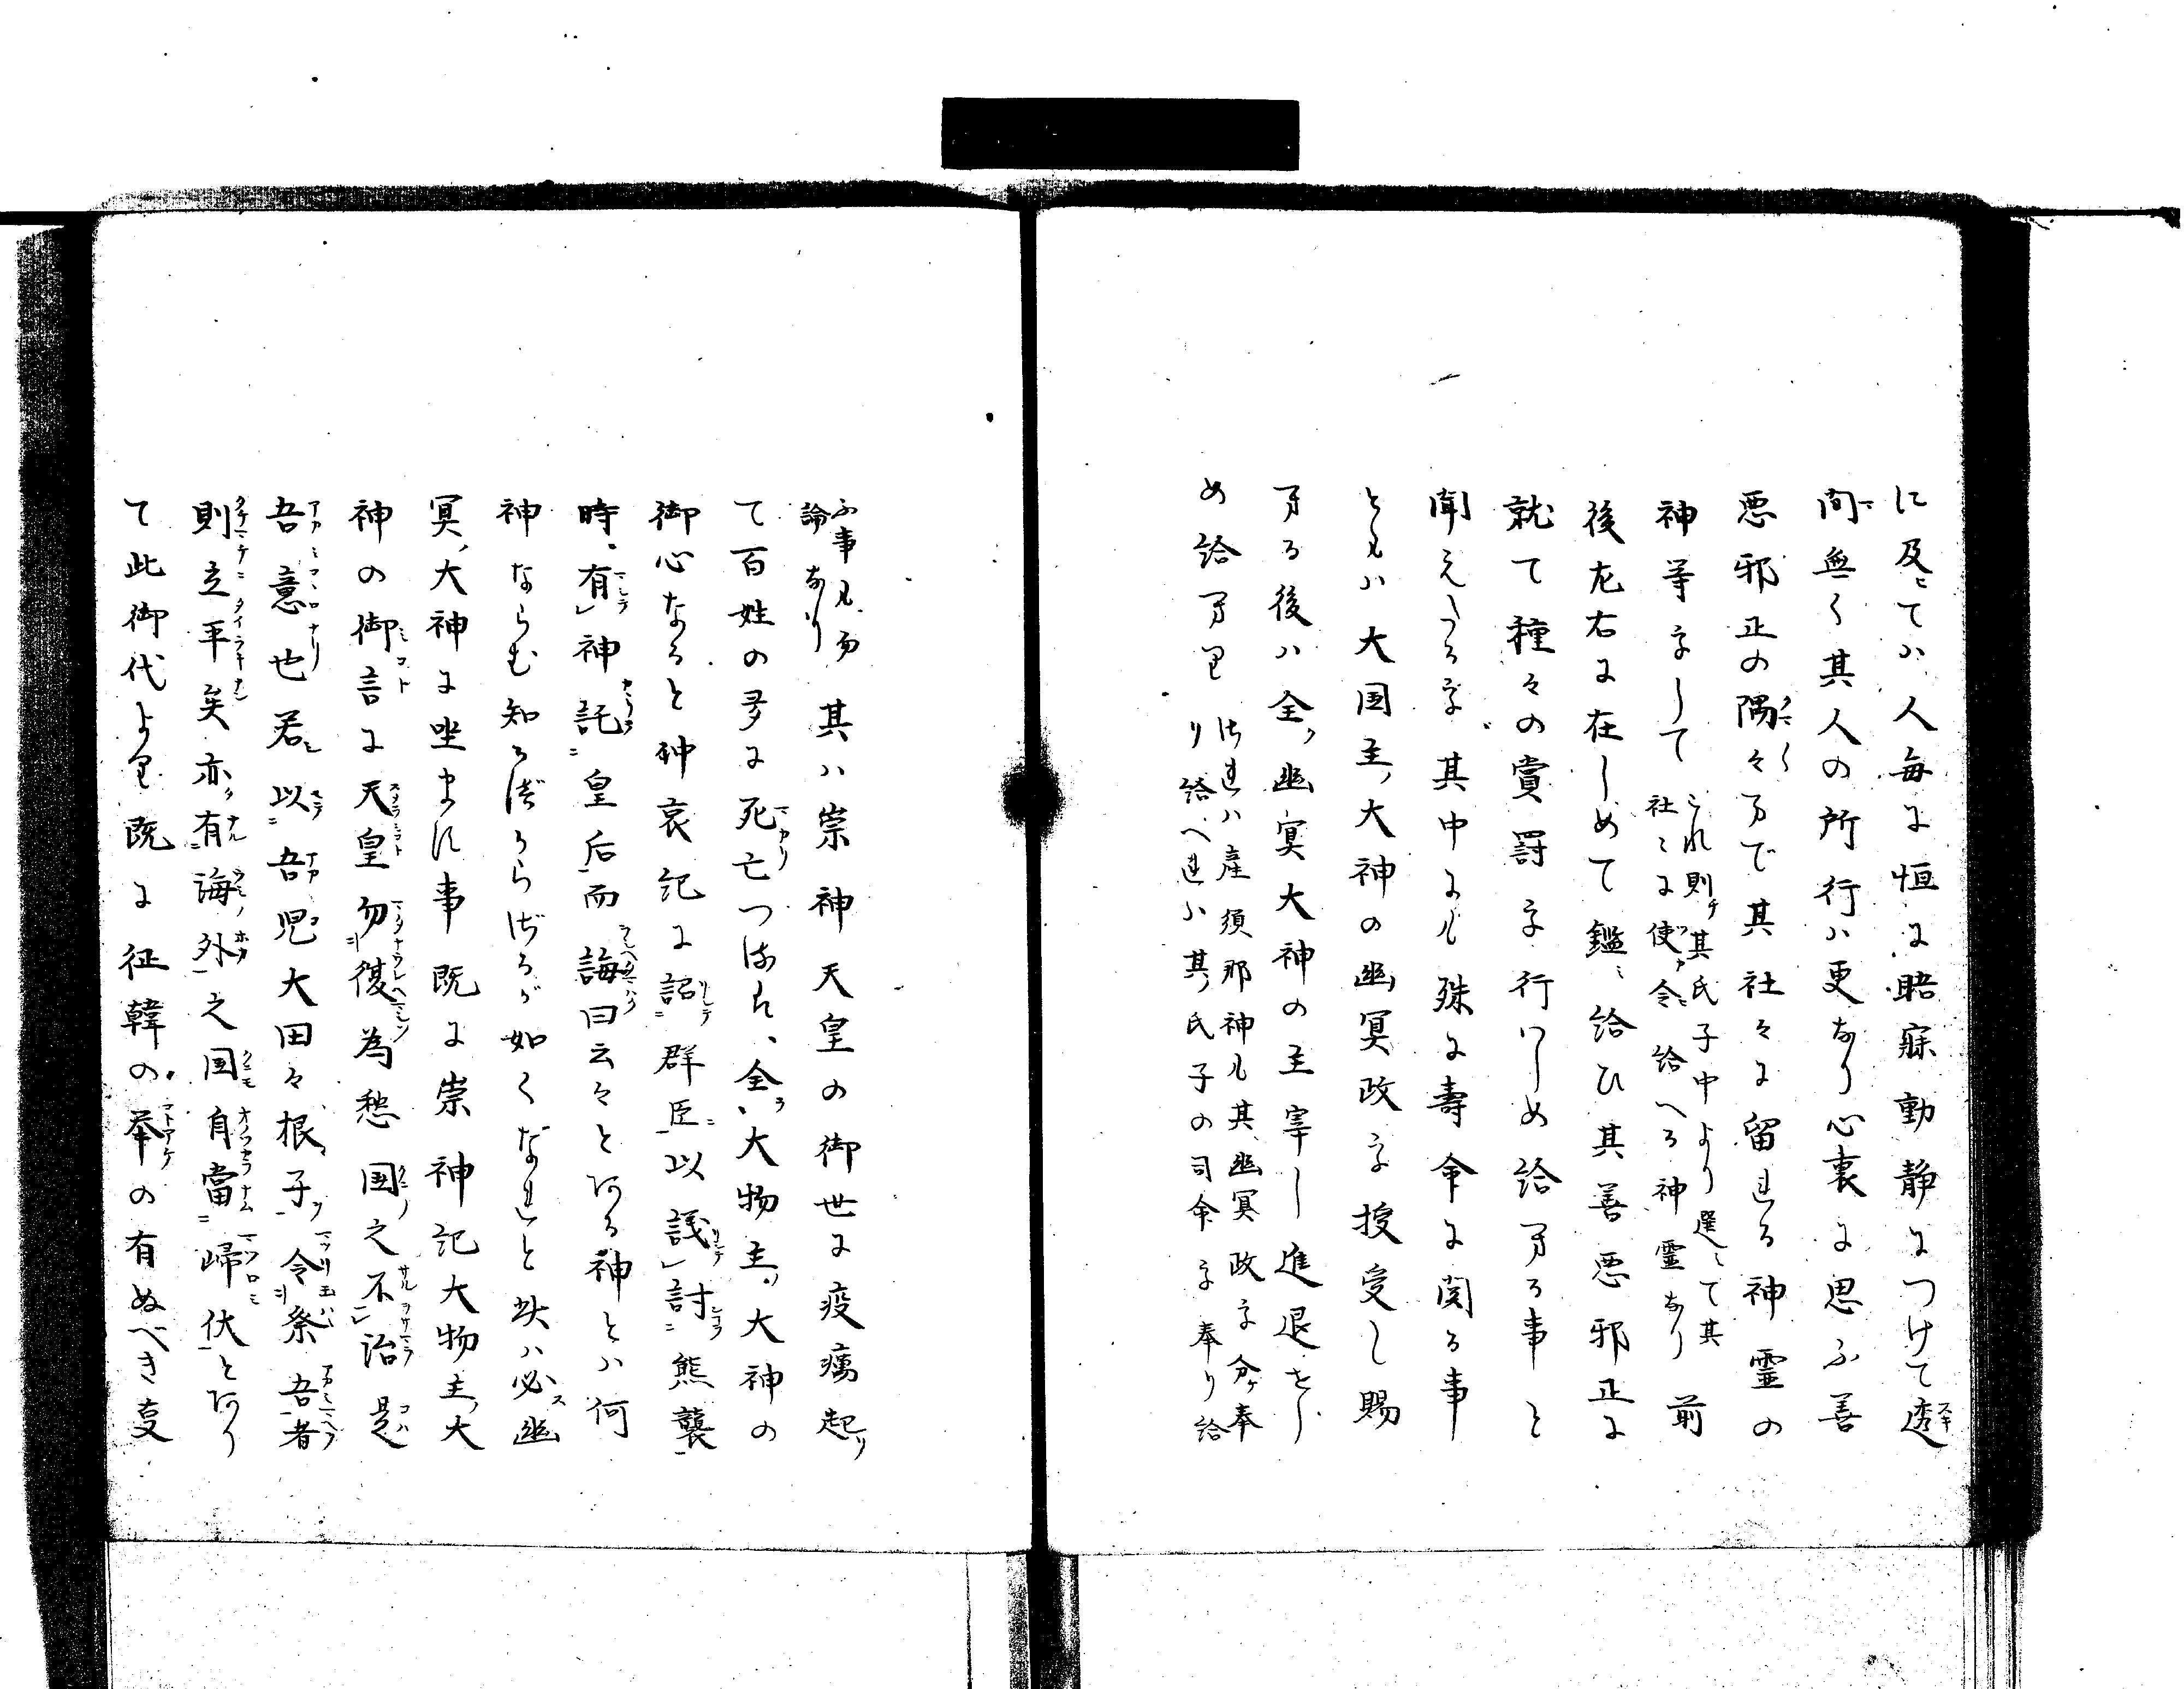 に及びては人毎に恒に晤寐動静につけて透
間無く其人の所行は更なり心裏に思ふ善
悪邪正の隅々まで其社々に留れる神霊の
神等をして
これ則チ其氏子中より選ミて其
社ミに使ハ令ミ給へる神霊なり
前
後左右に在しめて鑑ミ給ひ其善悪邪正に
就て種々の賞罰を行はしめ給ふる事と
聞えたるを其中にも殊に壽命に関る事
ともは大国主ノ大神の幽冥政を授受し賜
まる後は全ク幽冥大神の主宰し進退せし
め給まり
は産須那神も其幽冥政を分ケ奉
り給へれは其ノ氏子の司命を奉り給
ふ事も勿
論なり
其は崇神天皇の御世に疫癘起リ
て百姓の多に死亡つるは、全ラ大物主ノ大神の
御心なると仲哀記に詔群臣以議討熊襲
時、有神託皇后而誨曰云々とある神とは何
神ならむ知るべからざるが如くなれと此は必ス幽
冥ノ大神に坐ます事既に崇神記大物主ノ大
神の御言に天皇勿復為愁国之不治是
吾意也若以吾児大田々根子令祭吾者
則立平矣亦有海外之国自當歸伏とあり
て此御代より既に征韓の举の有ぬべき変